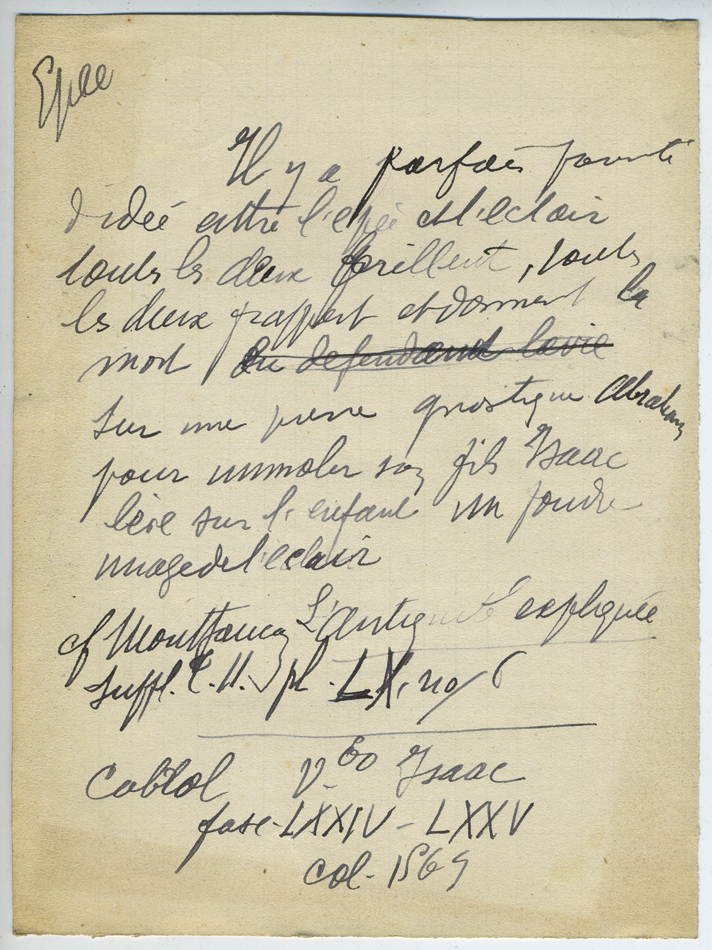 Epée
Il y a parfois parenté
d'idée entre l'épée et l'éclair
touts les deux brillent, touts
les deux frappent et donnent la
mort en défendant la vie
Sur une pierre gnostique Abraham
pour immoler son fils Isaac
lève sur l'enfant un foudre
image de l'éclair
cf Montfaucon L'Antiquité expliquée
Suppl. T. II. pl. LX, no 6
Cabrol Vbo Isaac
fasc. LXXIV - LXXV
col. 1569